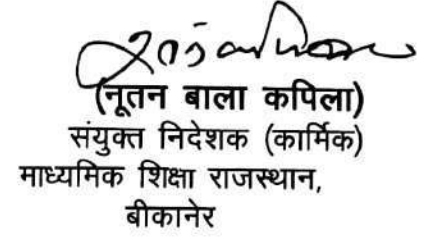 (नूतन बाला कपिला)
संयुक्त निदेशक (कार्मिक)
माध्यमिक शिक्षा राजस्थान,
बीकानेर